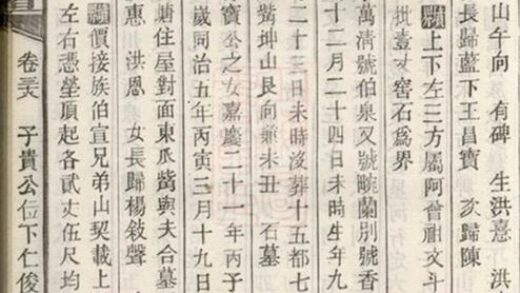 山午向 有碑 生洪憙 洪
長歸藍下王昌寶 次歸陳
上下左三方屬阿曾祖文斗
批壹丈窖石爲界
萬清號伯泉又號畹蘭別號香
十二月二十四日未時生年九
二十三日未時没葬十五都七
觜坤山艮向兼未丑 石墓
寶公之女嘉慶二十一年丙子
歲同治五年丙寅三月十九日
塘住屋對面東瓜觜與夫合墓
惠 洪恩 女長歸楊聲
價接族伯宣兄弟山契載上
左右憑塋頂起各貳丈伍尺均
卷 子貴公位下仁俊